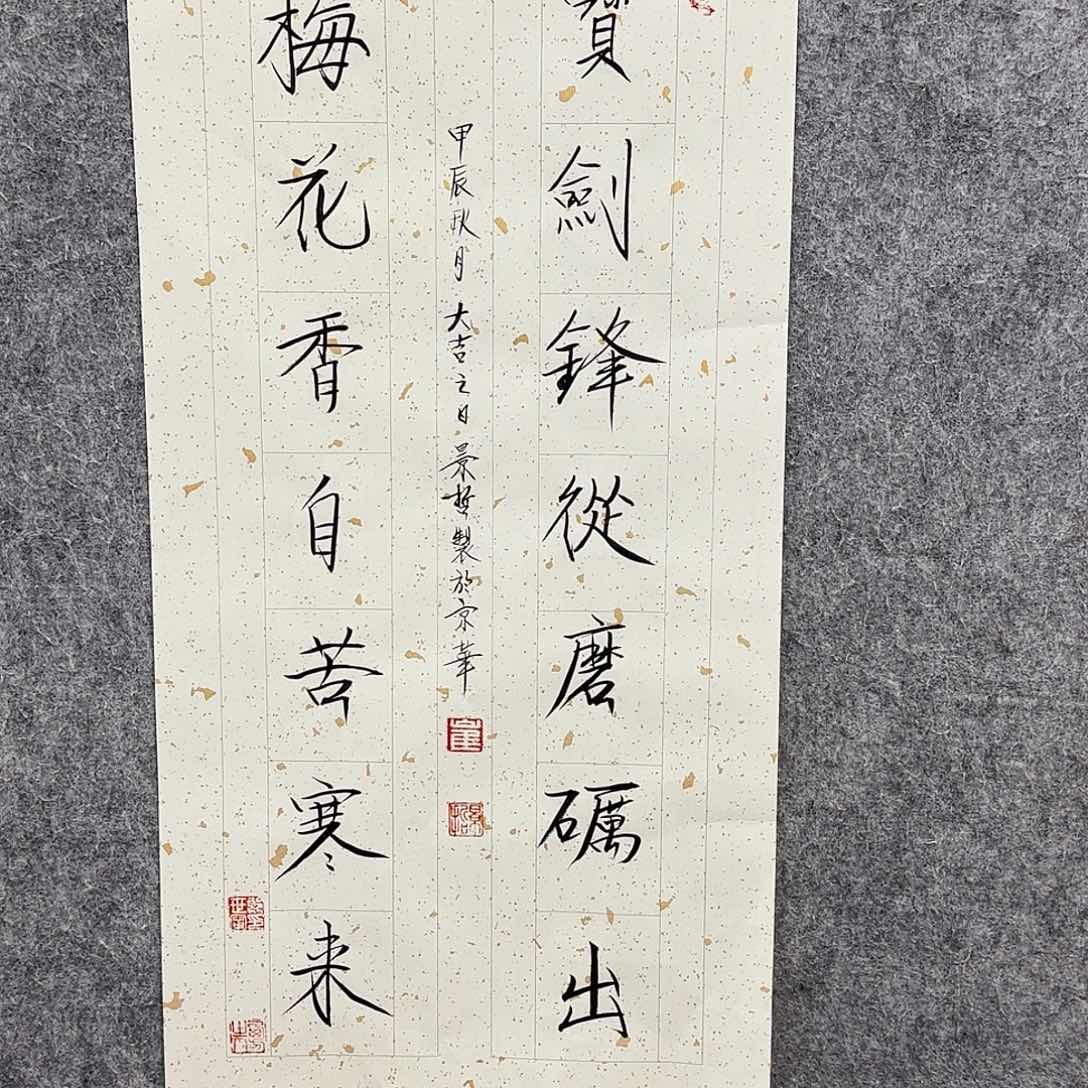 寶劍鋒從磨礪出
甲辰秋月大吉之日景哲製於京華
梅花香自苦寒来